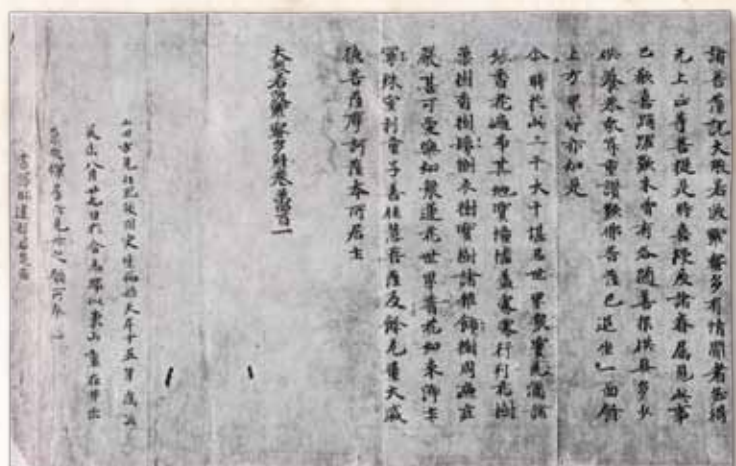 諸菩薩說大般若波羅蜜多有情聞者必得
无上正等菩提是時喜授及諸眷屬見此事
已歡喜踊躍歎未曾有各隨善根供具多少
供養恭敬尊重讚歎佛菩薩已退坐一面餘
上方界皆亦如是
尒時於此三千大千堪忍世界眾寶充滿諸
妙香花遍布其地寶幢幡蓋處處行列花樹
菓樹香樹鬘樹衣樹寶樹諸雜飾樹周遍莊
嚴甚可愛樂如眾蓮花世界普花如來淨土
曼殊室利童子善住慧菩薩及餘无量大威
德菩薩摩訶薩本所居土
大般若波羅蜜多經卷第四百一
史生 天平十五年歲次
八月廿九日於